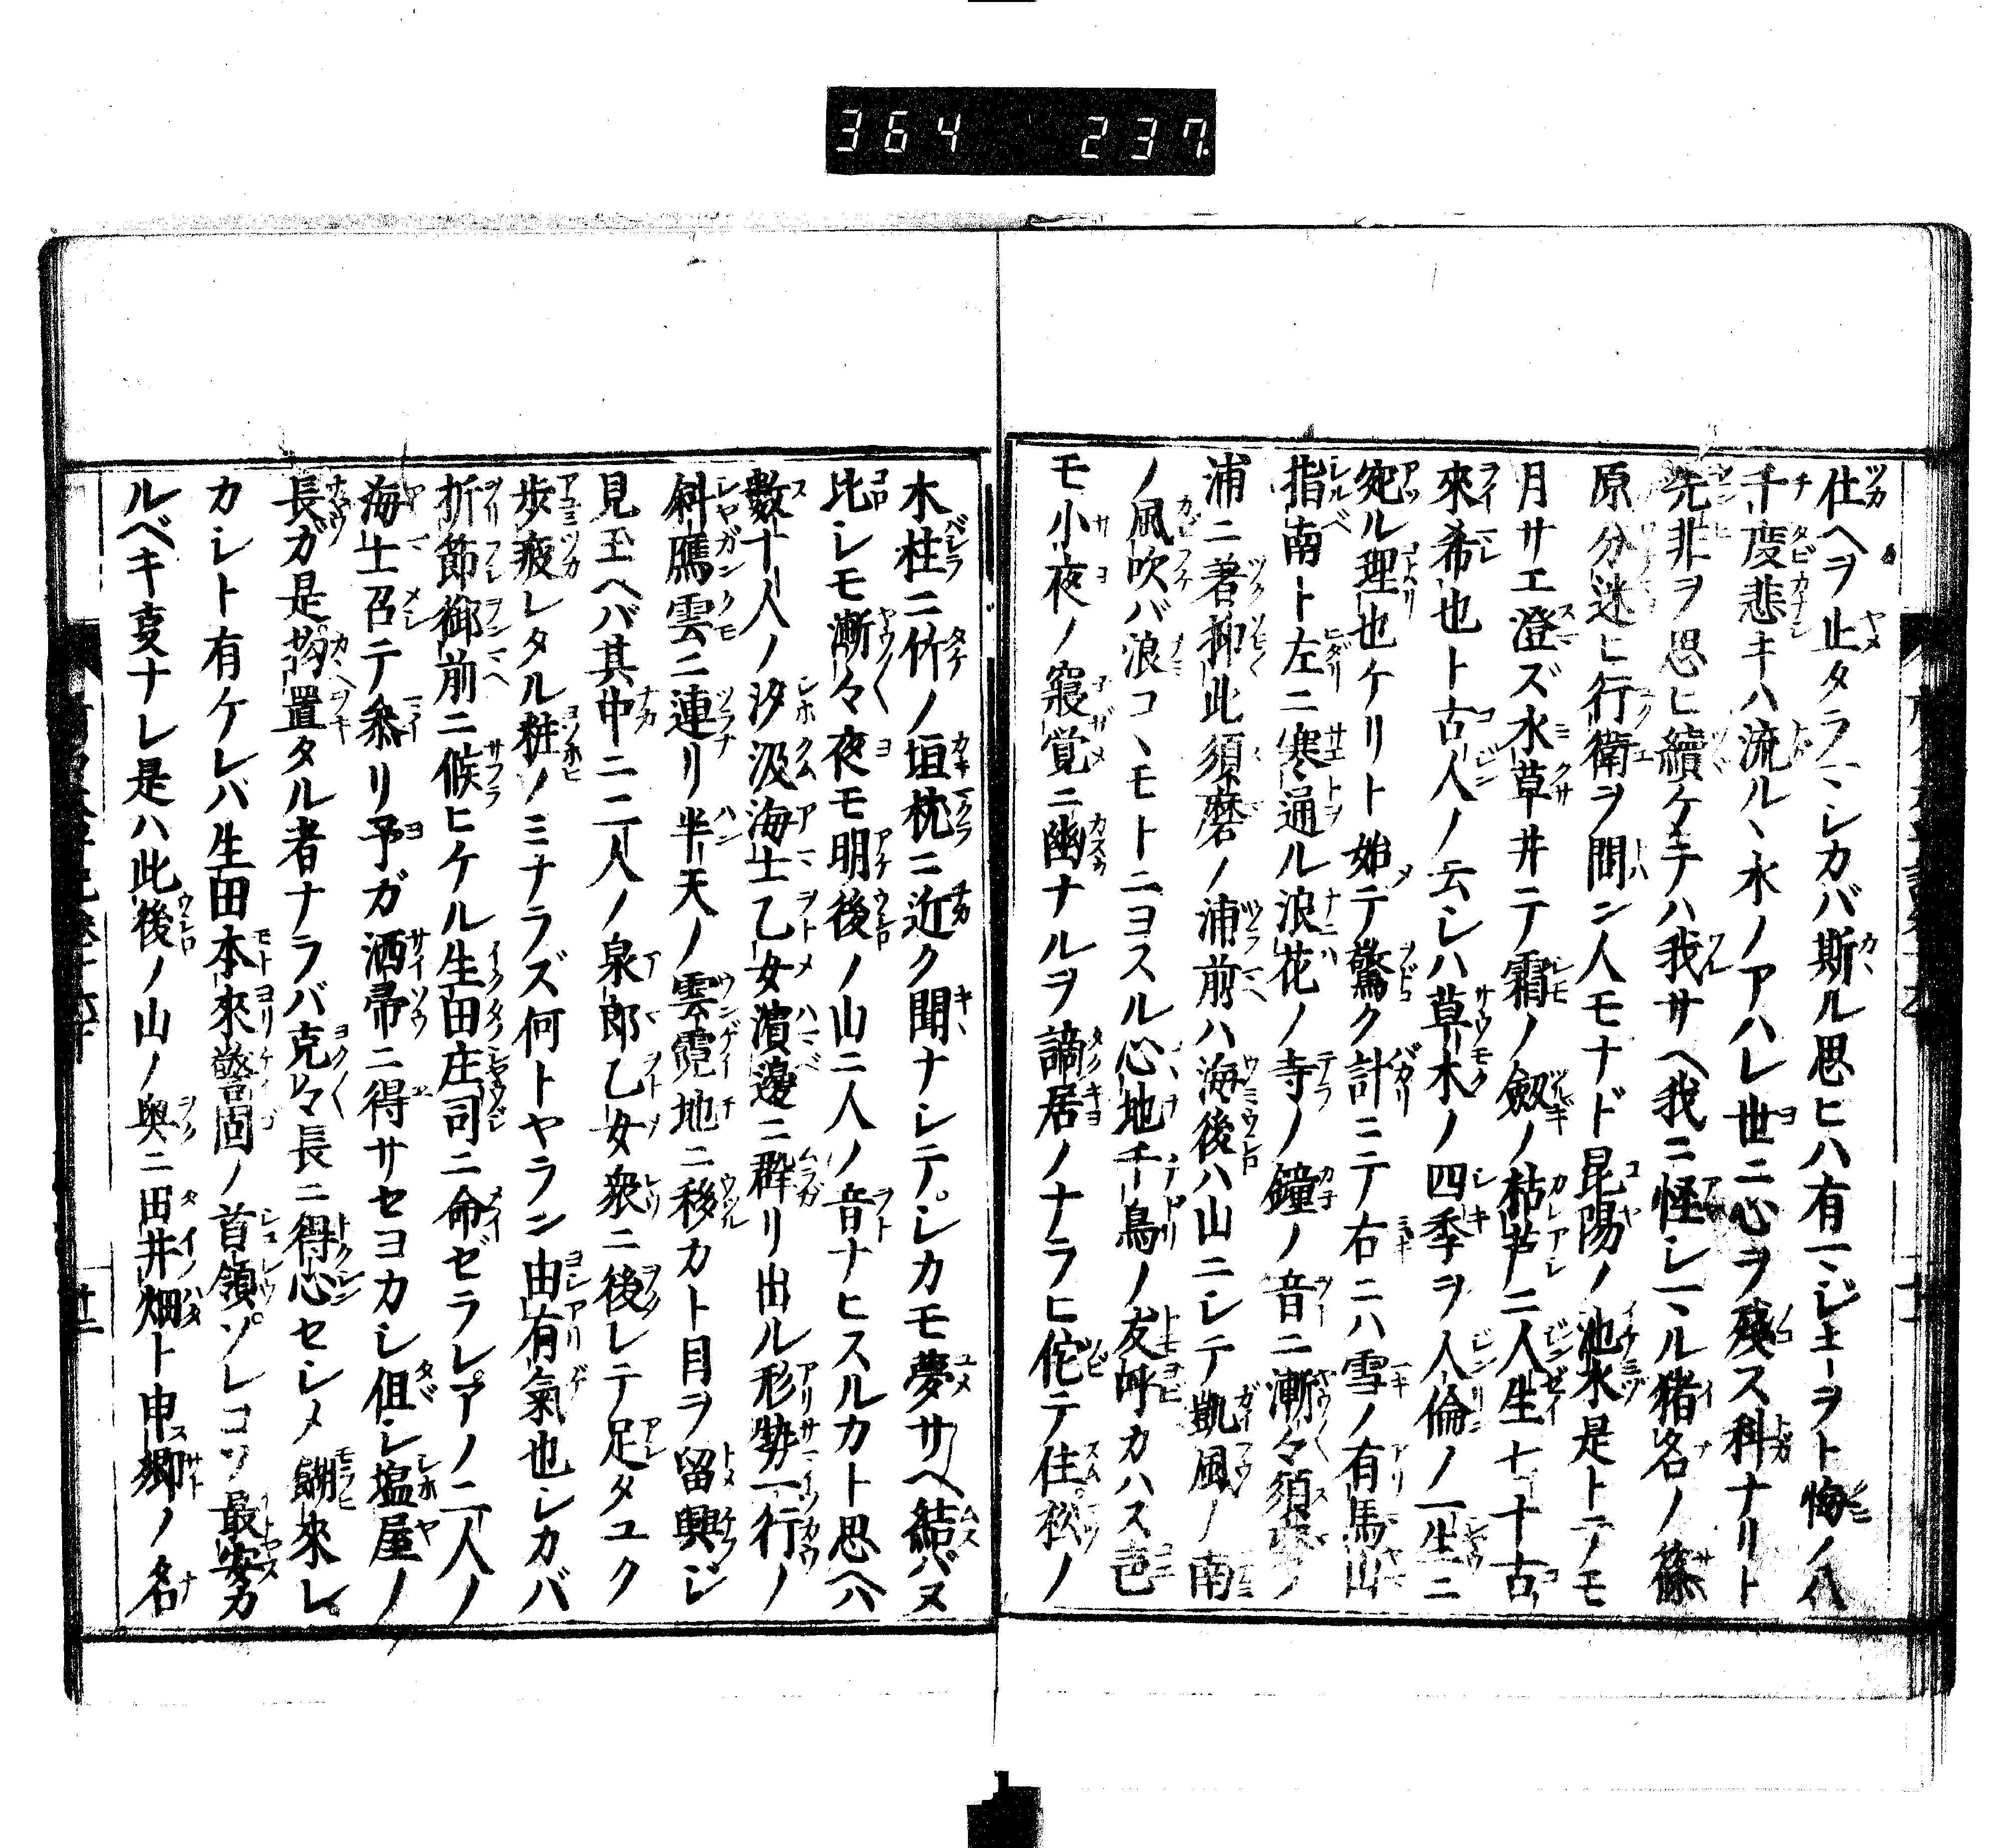 364 237
仕ヘヲ止タラマシカバ斯ル思ヒハ有マジキヲト悔ノ八
千度悲キハ流ルヽ水ノアハレ世ニ心ヲ殘ス科ナリト
先非ヲ思ヒ續ケテハ我サヘ我ニ怪シマルヽ猪名ノ篠
原分迷ヒ行衛ヲ問ン人モナド昆陽ノ池水是トテモ
月サエ澄ズ水草井テ霜ノ劔ノ枯芦ノ二人生七十古
來希也ト古人ノ云シハ草木ノ四季ヲ人倫ノ一生ニ
宛ル理也ケリト始テ驚ク計ニテ右ニハ雪ノ有馬山
指南ト左ニ寒通ル浪花ノ寺ノ鐘ノ音ニ漸々須磨ノ
浦ニ著抑此須磨ノ浦前ハ海後ハ山ニシテ凱風ノ南
ノ風吹バ浪コヽモトニヨスル心地千鳥ノ友呼カハス
モ小夜ノ寢覚ニ幽ナルヲ謫居ノナラヒ侘テ住松ノ
木柱ニ竹ノ垣枕ニ近ク聞ナシテシカモ夢サヘ結バヌ
比シモ漸々夜モ明後ノ山ニ人ノ音ナヒスルカト思ヘハ
數十人ノ汐汲海士乙女濵邊ニ群リ出ル形勢一行ノ
斜鴈雲ニ連リ半天ノ雲霓地ニ移カト目ヲ留興ジ
見玉ヘバ其中ニ二人ノ泉郎乙女衆ニ後レテ足タユク
歩疲レタル粧ノミナラズ何トヤラン由有氣也シカバ
折節御前ニ候ヒケル生田庄司ニ命ゼラレアノ二人ノ
海士召テ參リ予ガ洒帚ニ得サセヨカシ但シ塩屋ノ
長ガ是ヲ拘置タル者ナラバ克々長ニ得心セシメ餬來レ
カシト有ケレバ生田本來警固ノ首領ゾレコソ最安カ
ルベキ叓ナレ是ハ此後ノ山ノ奥ニ田井畑ト申ス郷ノ名